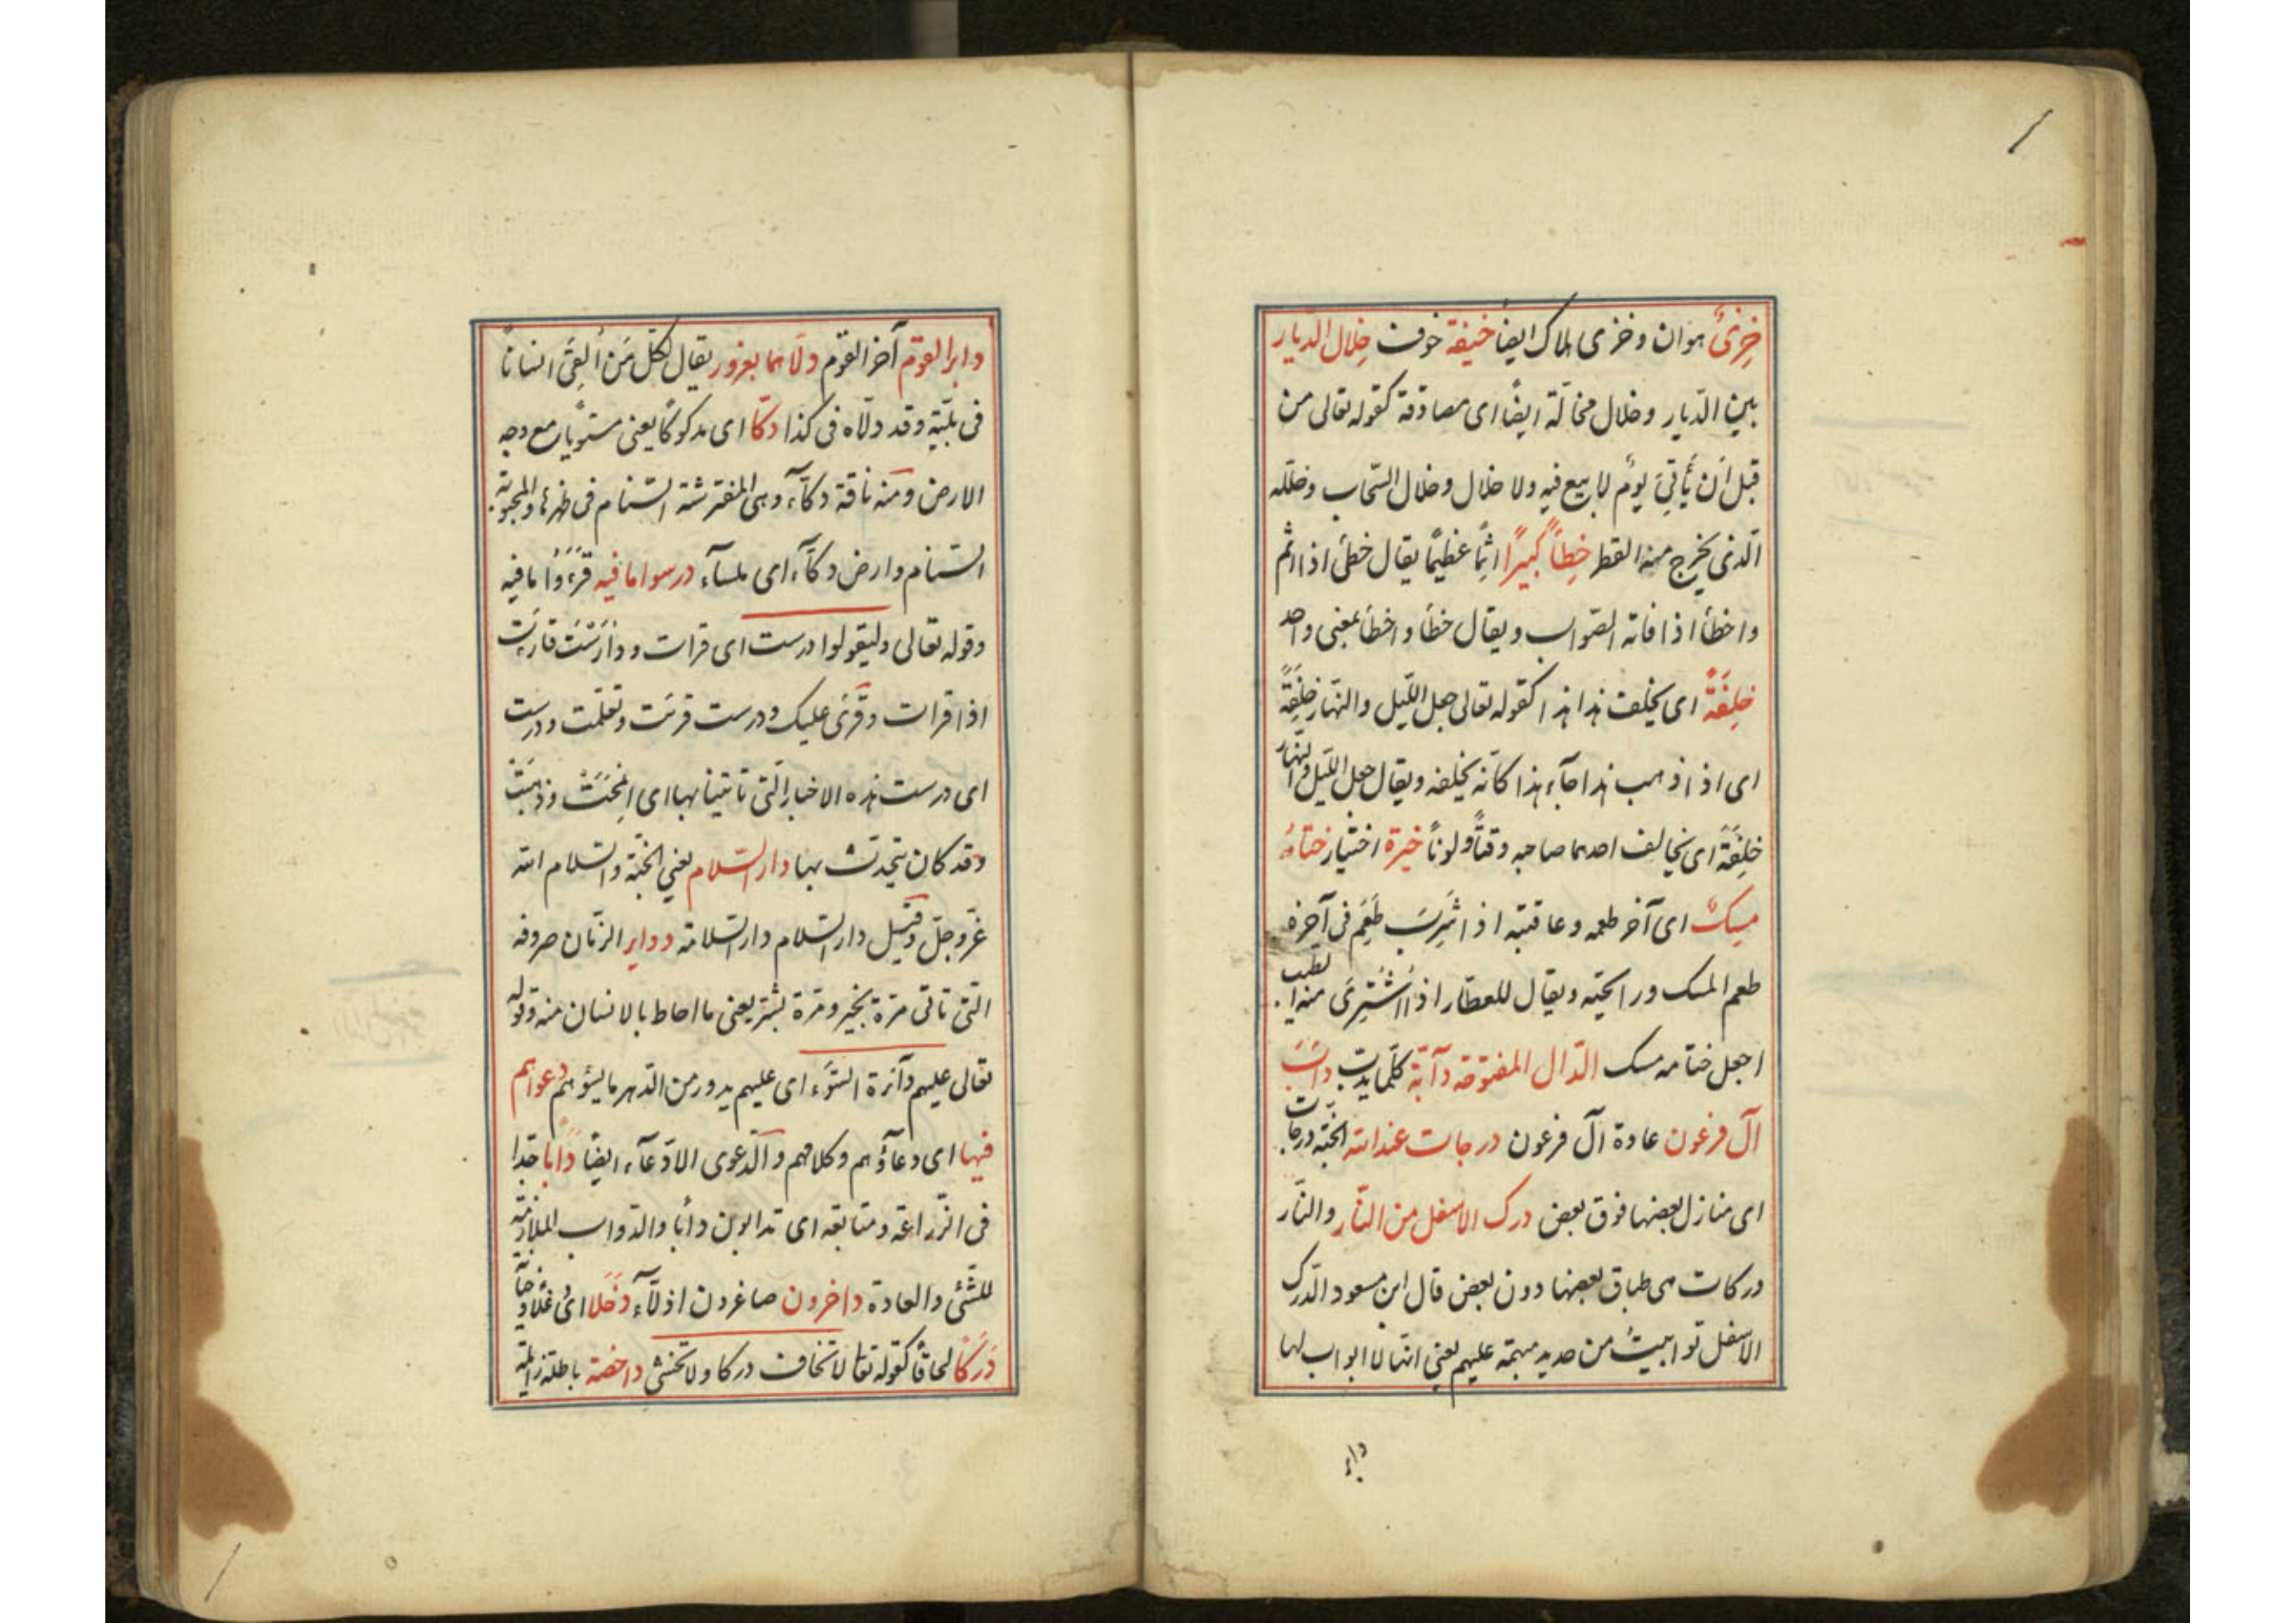 خِزىٌ هوان وخزى هلاك ايضا خيفة خوف خلال الديار
بين الديار وخلال مخالّة ايضًا اى مصادقة كقوله تعالى من
قبل اَن يَأتِىَ يومٌ لا بيع فيه ولا خلال وخلال السّحاب وخلله
الّذى يخرج منه القطر خِطأً كبيرًا اثمًا عظيمًا يقال خطئ اذا اثم
واخطأ اذا فاته الصّواب ويقال خطأ واخطأ بمعنى واحد
خِلفَةً اى يخلف هذا هذا كقوله تعالى جعل اللّيل والنّهار خِلفَةً
اى اذا ذهب هذا جآء هذا كانّه يخلفه ويقال جعل اللّيل والنّهار
خِلفَةً اى يخالف احدهما صاحبه وقتًا ولونًا خيرة اختيار ختامُهُ
مِسكٌ اى آخر طعمه وعاقبته اذا شُرِبَ طَعِم فى آخره
طعم المسك ورايحته ويقال للعطّار اذا اشتُرِىَ منه الطيب
اجعل ختامه مسك الدّال المفتوحة دآبّة كلّما يدبّ دأب
آل فرعون عادة آل فرعون درجات عند الله الجنّة درجات
اى منازل بعضها فوق بعض درك الاسفل من النّار والنّار
دركات هى طباق بعضها دون بعض قال ابن مسعود الدّرك
الاسفل توابيتُ من حديد مبهمة عليهم يعنى انّها لا ابواب لها
دابر
دابر القوم آخر القوم دلّاهما بغرور يقال لكلّ مَن اَلقَى انسانًا
فى بليّة وقد دلّاه فى كذا دكّا اى مدكوكًا يعنى مستويا مع وجه
الارض ومنه ناقة دكّآء وهى المفترشة السّنام فى ظهرها والمجبوبة
السّنام وارض دكّآء اى ملسآء درسوا ما فيه قَرَءُوا ما فيه
وقوله تعالى وليقولوا درست اى قرات ودَارَسْتَ قارَيت
اذا قرات وقُرئ عليك ودرست قرئت وتعلّمت ودرست
اى درست هذه الاخبار الّتى تاتينا بها اى اِمَّحَت وذهبت
وقد كان يتحدّث بها دار السّلام يعنى الجنّة والسّلام الله
عزّ وجلّ وقيل دار السّلام دار السّلامة دوابر الزّمان صروفه
الّتى تاتى مرّة بخير ومرّة بشرّ يعنى ما احاط بالانسان منه وقوله
تعالى عليهم دآئرة السّوء اى عليهم يدور من الدّهر ما يسؤهم دعواهم
فيها اى دعآؤهم وكلامهم والدّعوى الادّعآء ايضًا دأبا جدّا
فى الزّراعة ومتابعة اى تدابون دأبا والدّواب الملازمة
للشّئ والعادة داخرون صاغرون اذلّآء دَخَلا اى دغلا وخيانة
دَرَكًا لحاقًا كقوله تعا لا تخاف دركا ولا تخشى داحضة باطلة زايلة